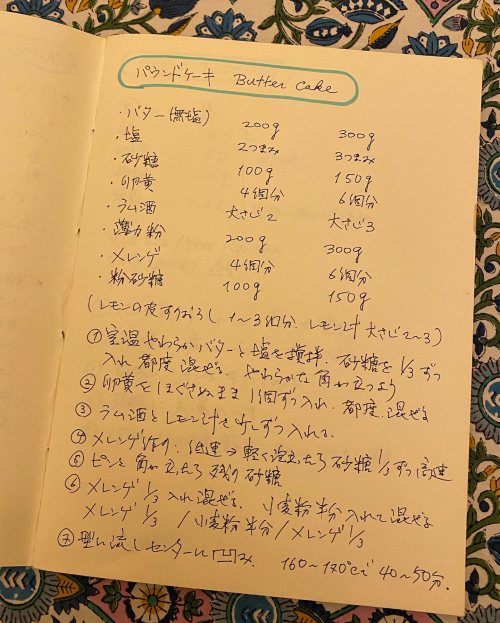 パウンドケーキ Butter Cake
・バター(無塩) 200g 300g
・塩 2つまみ 3つまみ
・砂糖 100g 150g
・卵黄 4個分 6個分
・ラム酒 大さじ2 大さじ3
・薄力粉 200g 300g
・メレンゲ 4個分 6個分
・粉砂糖 100g 150g
(レモンの皮すりおろし 1〜3個分 レモン汁 大さじ2〜3)
①室温やわらかバターと塩を攪拌. 砂糖を1/3ずつ
入れ都度混ぜる. やわらかな角が立つよう
②卵黄をほぐさぬまま1個ずつ入れ. 都度.混ぜる
③ラム酒とレモン汁を少しずつ入れる.
④メレンゲ作り. 低速→軽く泡立ったら砂糖1/3ずつ高速
⑤ピンと角が立ったら残りの砂糖
⑥メレンゲ1/3入れ混ぜる. 小麦粉半分入れて混ぜる
メレンゲ1/3 /小麦粉半分/メレンゲ1/3
⑦型に流しセンターに凹み. 160〜170℃で40〜50分.